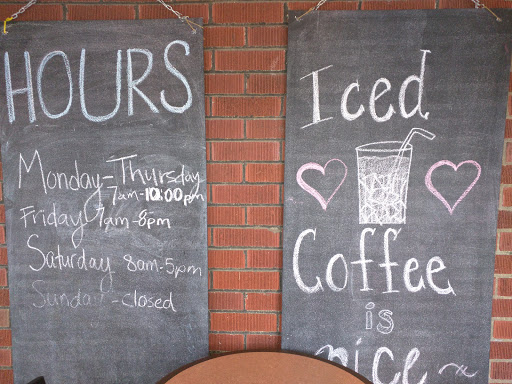 HOURS
Monday-Thursday
7am-10:00pm
Friday 7am-8pm
Saturday 8am-5pm
Sunday-closed
Iced
Coffee
is
nice~